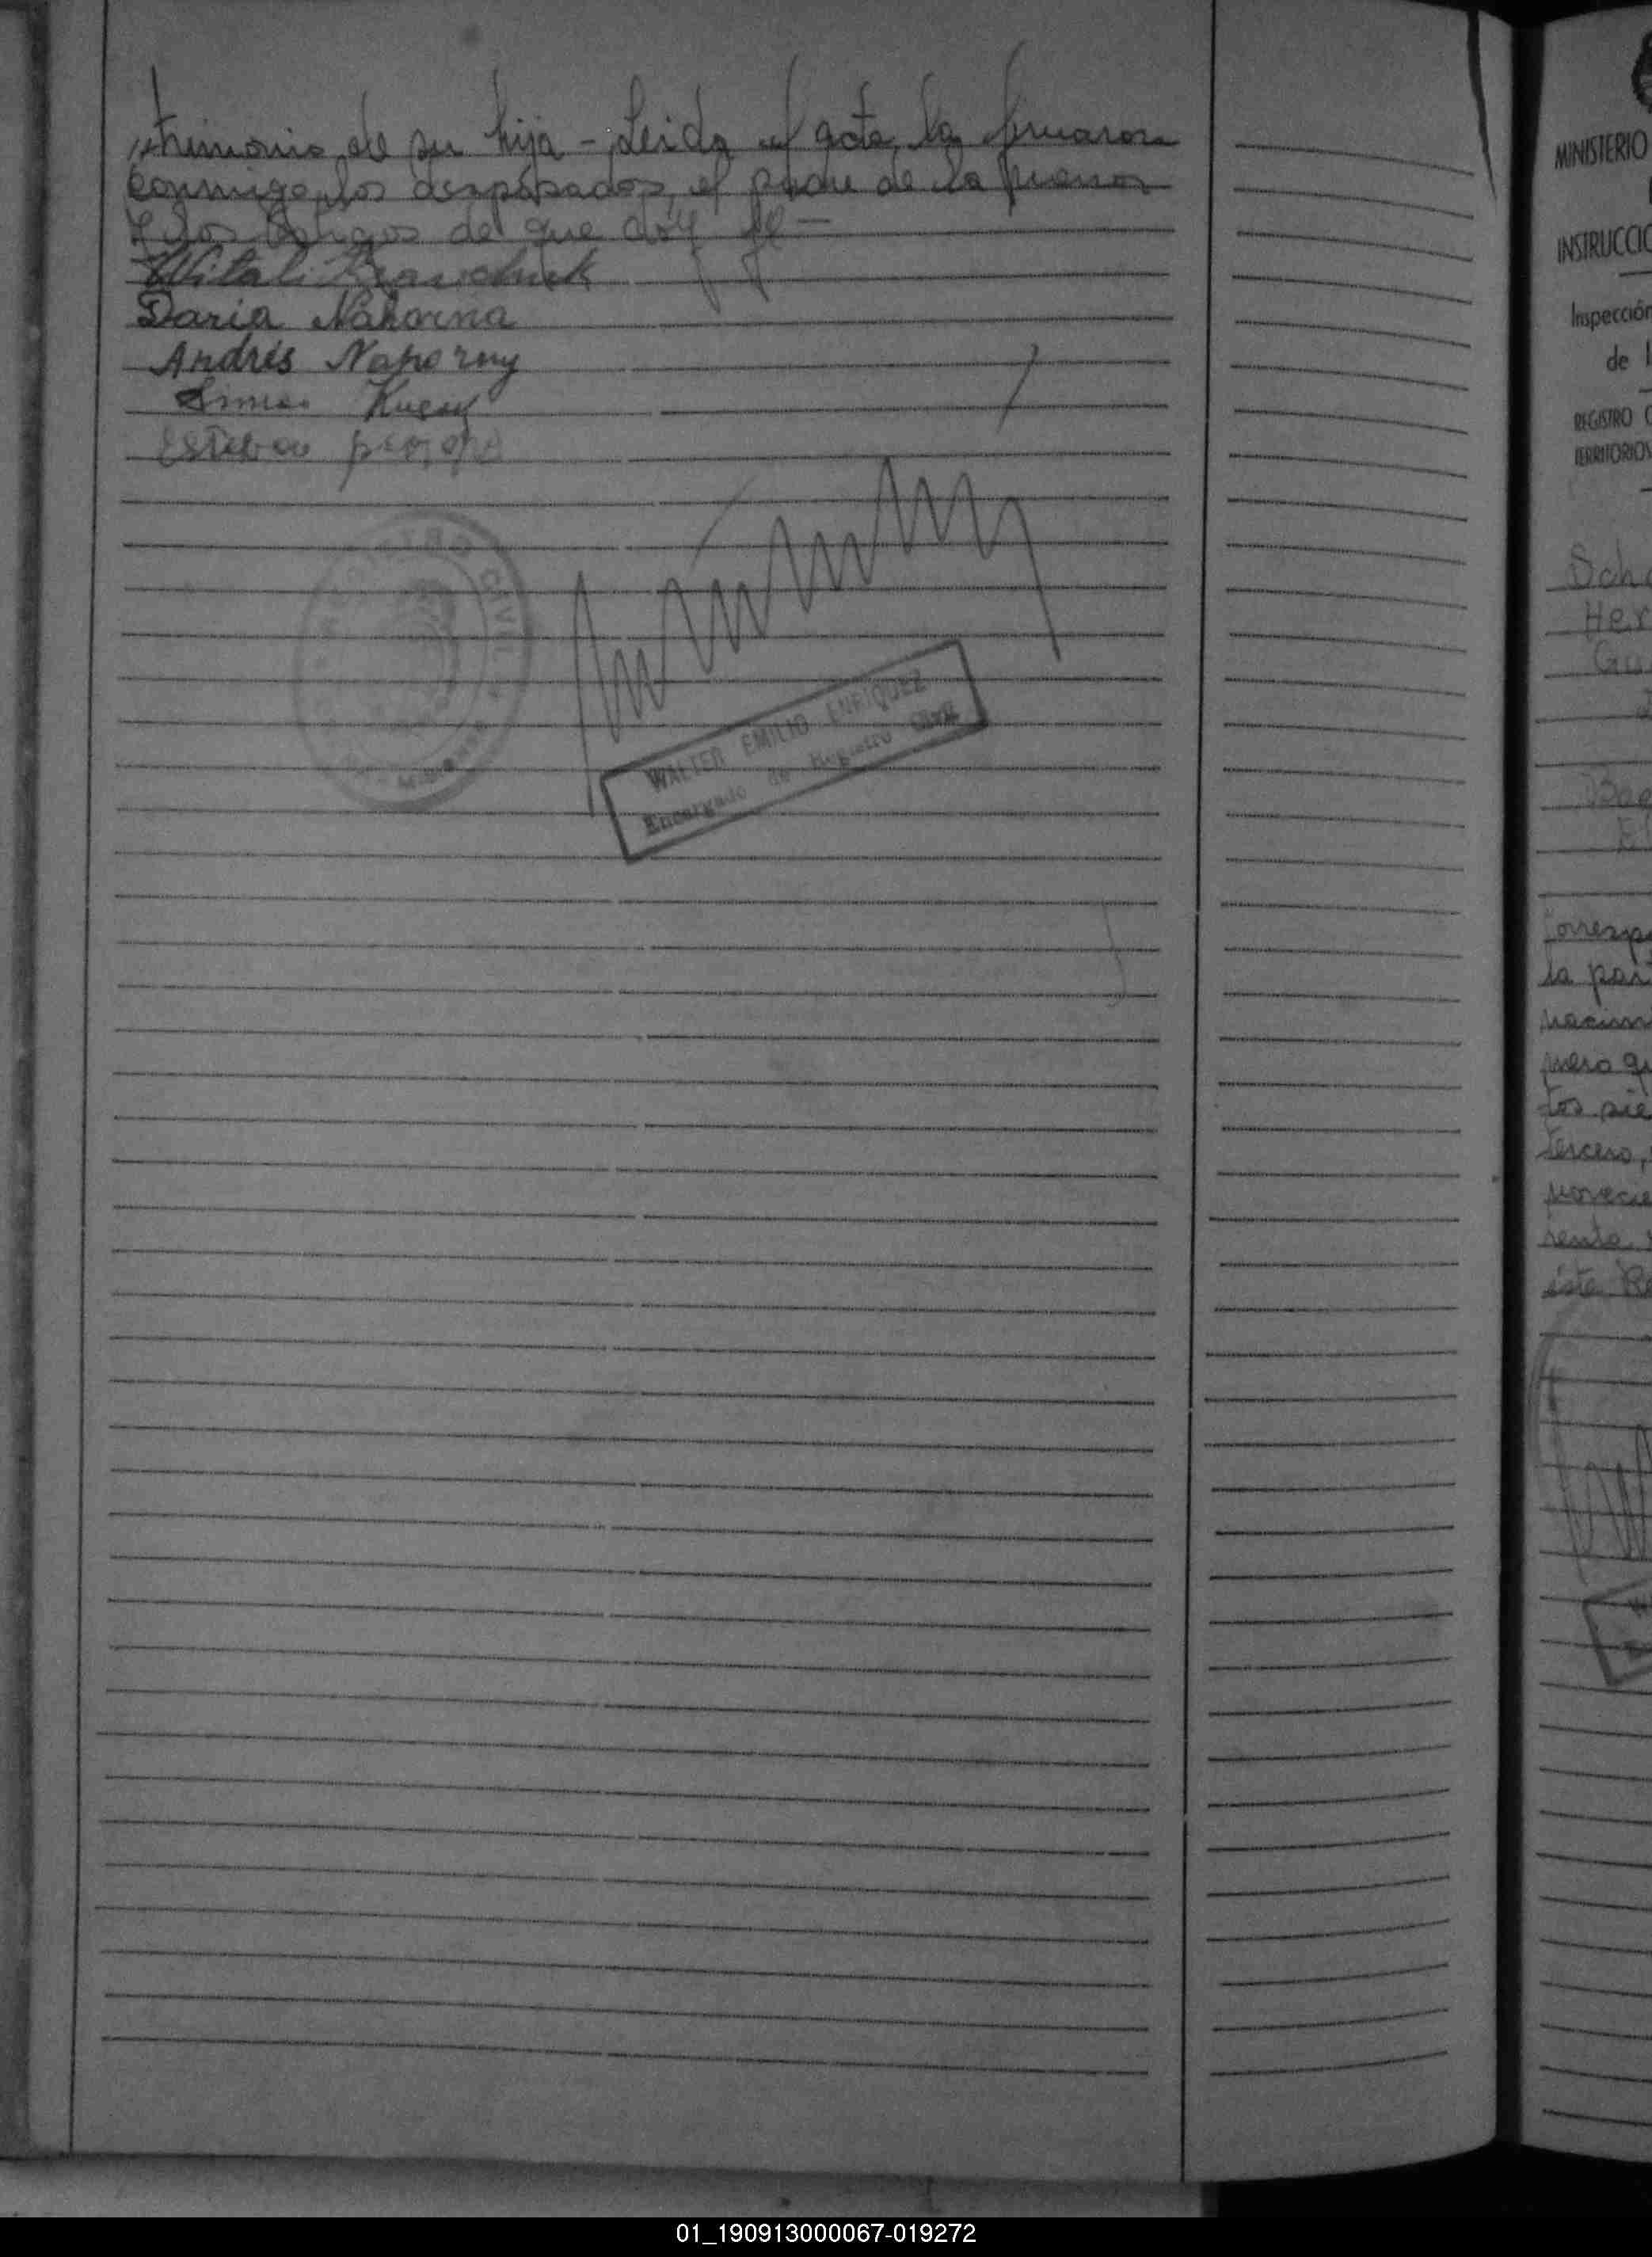 trimonio de su hija - Leida el acta, la firmaron
conmigo, los desposados, el padre de la menor
y los testigos de que doy fe -
Witali Krawchuk
Daria Nahorna
Andrés Nahorny
Esteban
REGISTRO CIVIL
MISIONES
WALTER EMILIO ENRIQUEZ
Encargado de Registro Civil
MINISTERIO
INSTRUCCIO
Inspección
de l
REGISTRO C
TERRITORIOS
Sch
Her
Gu
corresp
la par
nacim
mero qu
tos sie
tercero,
novecie
renta
éste Re
01_190913000067-019272